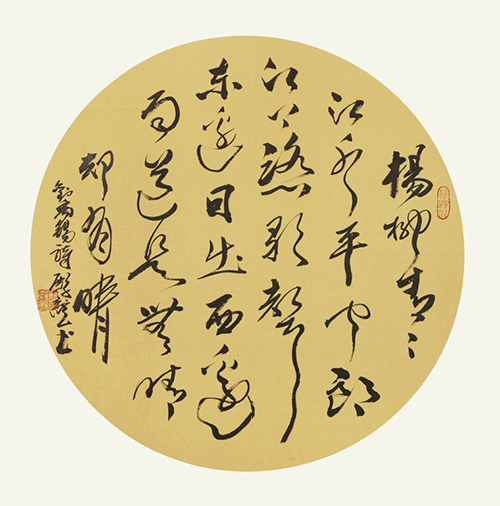 楊柳青〻
江水平闻郎
江上踏歌聲
东邊日出西邊
雨道是無晴
却有晴
劉禹錫詩 书